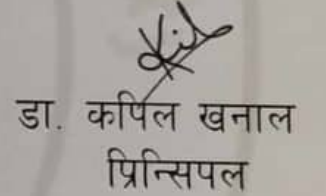 डा. कपिल खनाल
प्रिन्सिपल